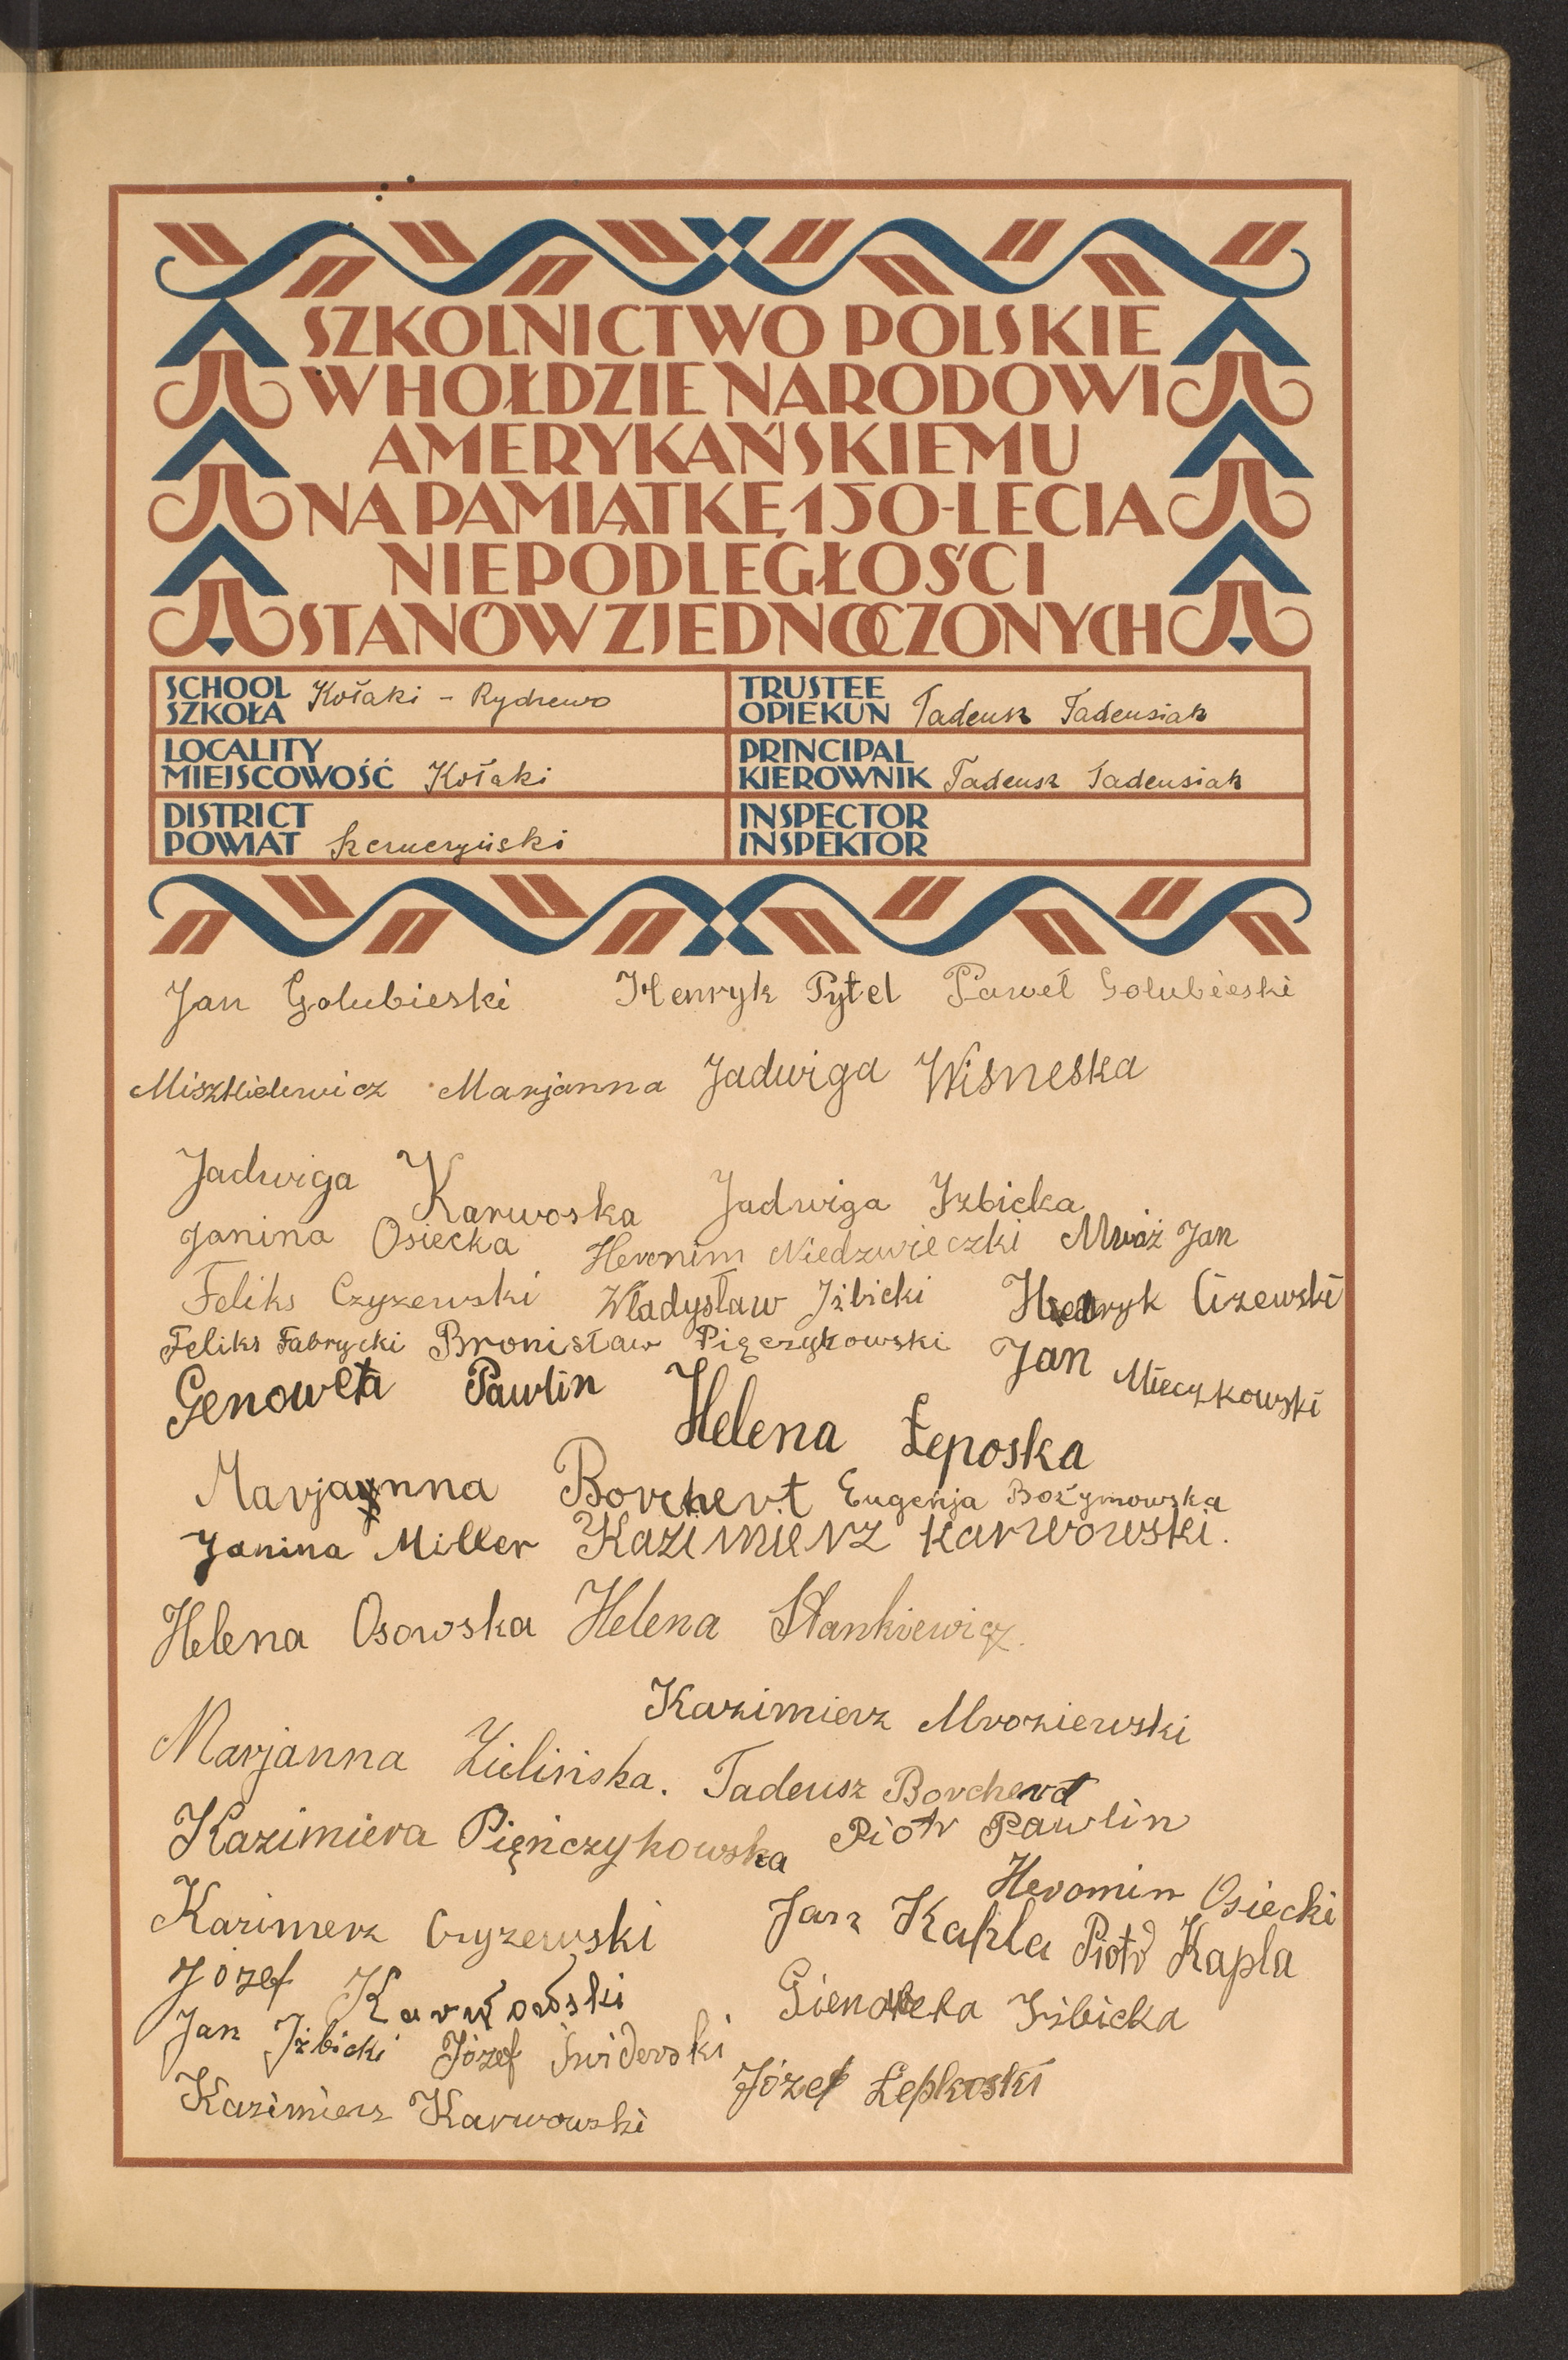 SZKOLNICTWO POLSKIE
W HOŁDZIE NARODOWI
AMERYKAŃSKIEMU
NA PAMIĄTKĘ 150-LECIA
NIEPODLEGŁOŚCI
STANÓW ZJEDNOCZONYCH
SCHOOL
SZKOŁA Kołaki - Rydzewo
TRUSTEE
OPIEKUN Tadeusz Tadeusiak
LOCALITY
MIEJSCOWOŚĆ Kołaki
PRINCIPAL
KIEROWNIK Tadeusz Tadeusiak
DISTRICT
POWIAT
INSPECTOR
INSPEKTOR
Jan Golubieski Henryk Pytel Paweł Golubieski
Marjanna Jadwiga Wisneska
Jadwiga Karwoska Jadwiga Izbicka
Janina Osiecka Heronim Niedzwieczki Mważ Jan
Feliks Czyzewski Władysław Iżbicki Henryk Cizewski
Feliks Fabrycki Bronisław Pięczykowski Jan Mieczkowski
Genowefa Pawlin Helena Łeposka
Marjanna Borchert Eugenja Bożymowska
Janina Miller Kazimierz Karwowski.
Helena Osowska Helena Stankiewicz.
Kazimierz Mroziewski
Marjanna Zielińska. Tadeusz Borchert
Kazimiera Pięńczykowska Piotr Pawlin
Heromin Osiecki
Kazimerz Czyzewski Jan Kapla Piotr Kapla
Józef Karwowski Gienowefa Iżbicka
Jan Iżbicki Józef Świderski
Kazimierz Karwowski Józef Łepkoski